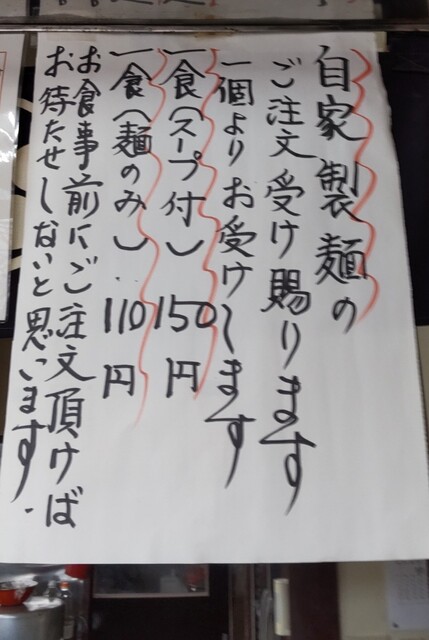 自家製麺の
ご注文受け賜ります
一個よりお受けします
一食(スープ付) 150円
一食(麺のみ) 110円
お食事前にご注文頂けば
お待たせしないと思います.